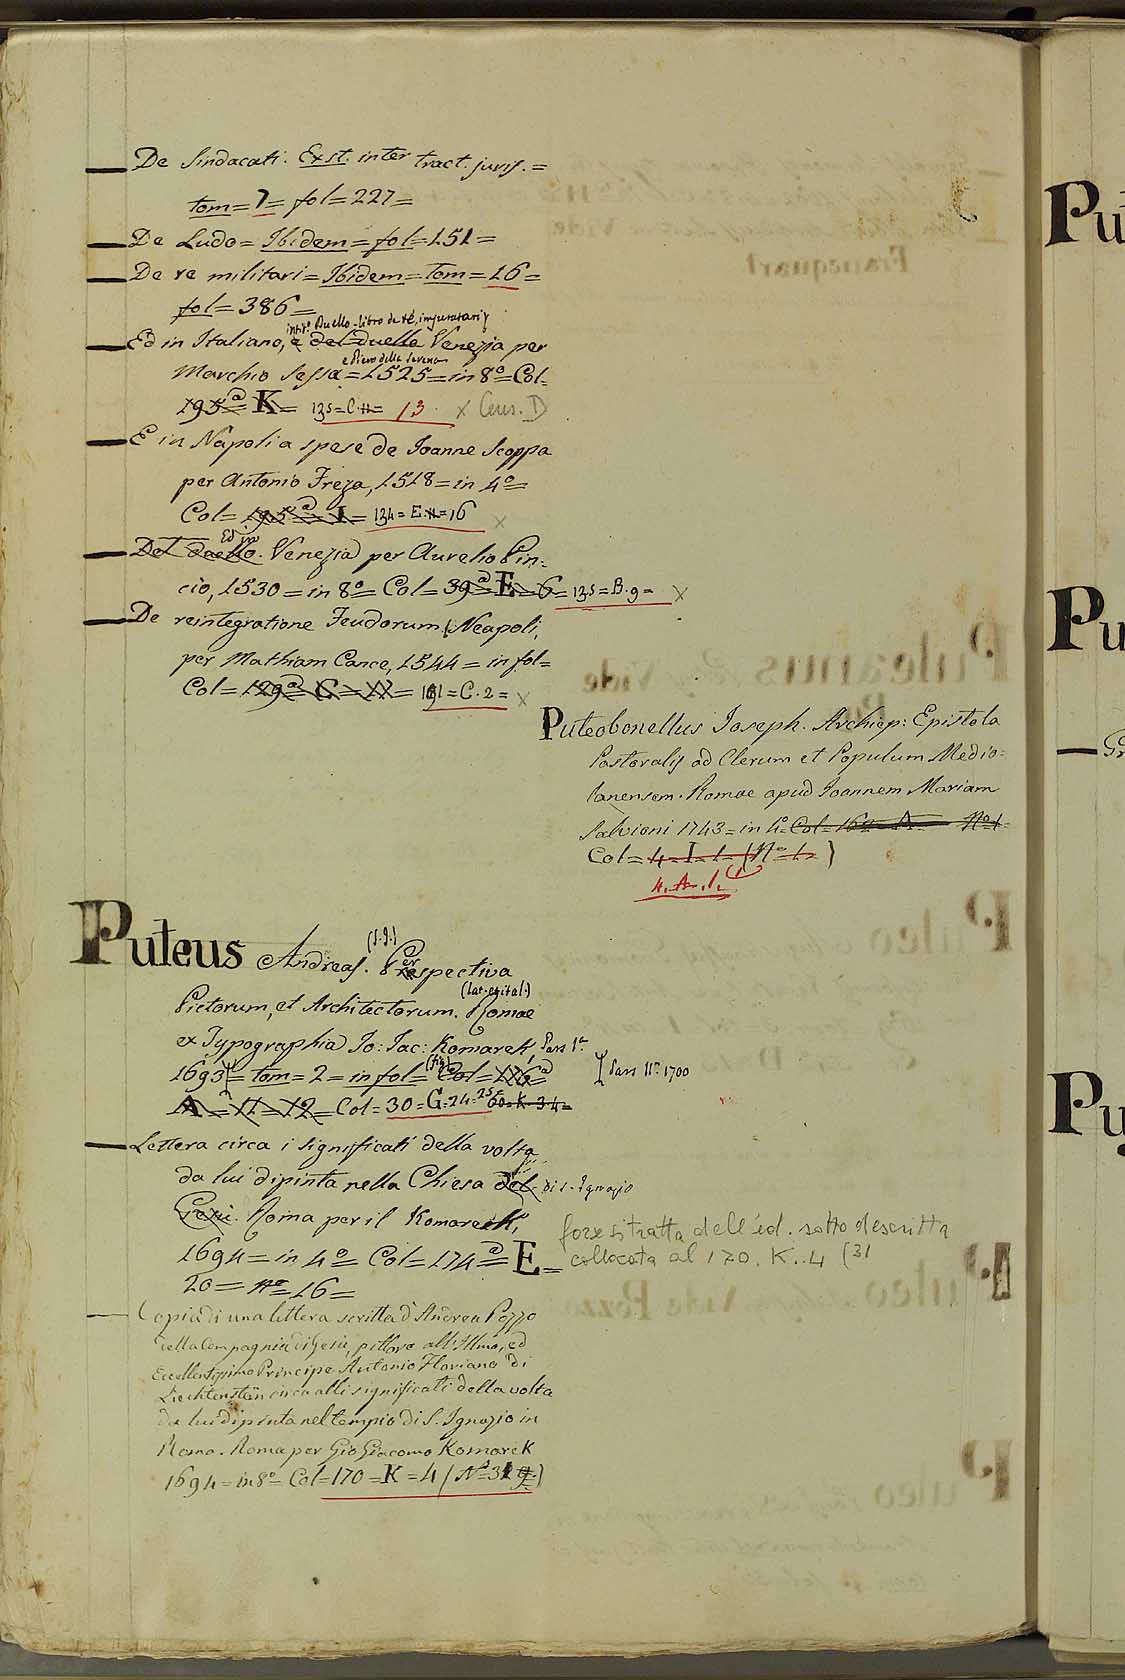 De Sindacati. Exst. inter tract. juris. =
tom = 7 = fol = 227 =
De Ludo = Ibidem = fol = 151 =
De re militari = Ibidem = tom = 16 =
fol = 386 =
intit.º Duello - libro de Re, imperatori,
Ed in Italiano, e del duello Venezia per
e Piero della Serena
Marchio Sessa = 1525 = in 8º = Col =
195 a = K = 135 = C.11 = 13. x Cens. D
E in Napoli a spese de Joanne Scoppa
per Antonio Freza, 1518 = in 4º =
Col = 195 a = I = 134 = E.11 = 16 x
Ed in
Del duello. Venezia per Aurelio Pin:
cio, 1530 = in 8º = Col = 39 a E = G = 135 = B.9 = x
De reintegratione Feudorum. Neapoli,
per Mathiam Cance, 1544 = in fol =
Col = 129 a = C = 11 = 191 = C.2 = x
Puteobonellus Joseph. Archiep: Epistola
Pastoralis ad Clerum et Populum Medio=
lanensem. Romae apud Joannem Mariam
Salvioni 1743 = in 4º = Col = 16 A Nº 1
Col = 4 = I = 1 = (Nº 1.)
4. A. 1.
Puteus Andreas. (S.J.) Perspectiva
Pictorum, et Architectorum. (lat. = ital.) Romae
ex Typographia Jo: Jac: Komarek, Pars 1ª
1693 = tom = 2 = in fol = (fig) Col = 176 a Pars IIª 1700
A = 11 = 12 = Col = 30 = G = 24 = 25 = 60 = K. 3. 4 =
Lettera circa i significati della volta
da lui dipinta nella Chiesa del di S. Ignazio
Gesù. Roma per il Komarek,
1694 = in 4º = Col = 174 a = E =
20 = nº = 16 =
forse si tratta dell'ed. sotto descritta
collocata al 170. K. 4 (31
Copia di una lettera scritta d'Andrea Pozzo
della Compagnia di Gesù, pittore all'Illmo, ed
Eccellentissimo Principe Antonio Floriano di
Liechtenstein circa alli significati della volta
da lui dipinta nel tempio di S. Ignazio in
Roma. Roma per Gio Giacomo Komarek
1694 = in 8º = Col = 170 = K = 4 (Nº 31)
Pu
Pu
Pu